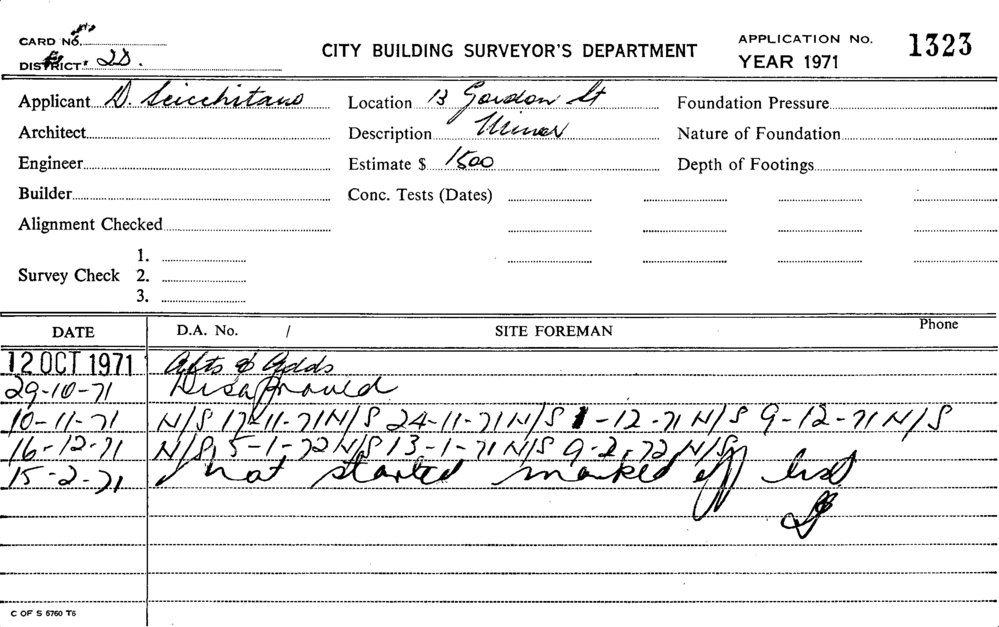 CARD No.
DISTRICT: 2D.
CITY BUILDING SURVEYOR'S DEPARTMENT
APPLICATION No. 1323
YEAR 1971
Applicant D. Scicchitano Location 13 Gordon St Foundation Pressure
Architect Description Minor Nature of Foundation
Engineer Estimate $ 1500 Depth of Footings
Builder Conc. Tests (Dates)
Alignment Checked
1.
Survey Check 2.
3.
DATE D.A. No. / SITE FOREMAN Phone
12 OCT 1971 Alts & Adds
29-10-71 Disapproved
10-11-71 N/S 17-11-71 N/S 24-11-71 N/S 1-12-71 N/S 9-12-71 N/S
16-12-71 N/S 5-1-72 N/S 13-1-71 N/S 9-2-72 N/S
15-2-71 not started marked off list
C OF S 5760 T6